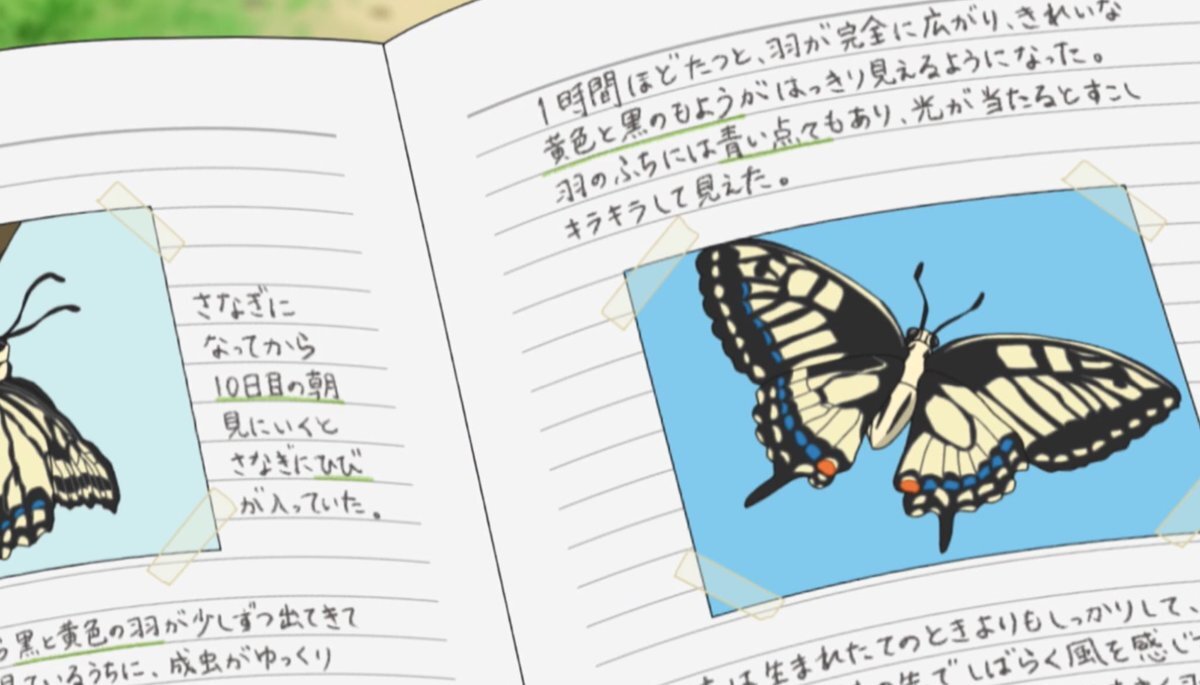 さなぎに
なってから
10日目の朝
見にいくと
さなぎにひび
が入っていた。
黒と黄色の羽が少しずつ出てきて
ているうちに、成虫がゆっくり
1時間ほどたつと、羽が完全に広がり、きれいな
黄色と黒のもようがはっきり見えるようになった。
羽のふちには青い点々もあり、光が当たるとすこし
キラキラして見えた。
は生まれたてのときよりもしっかりして、
の先でしばらく風を感じ